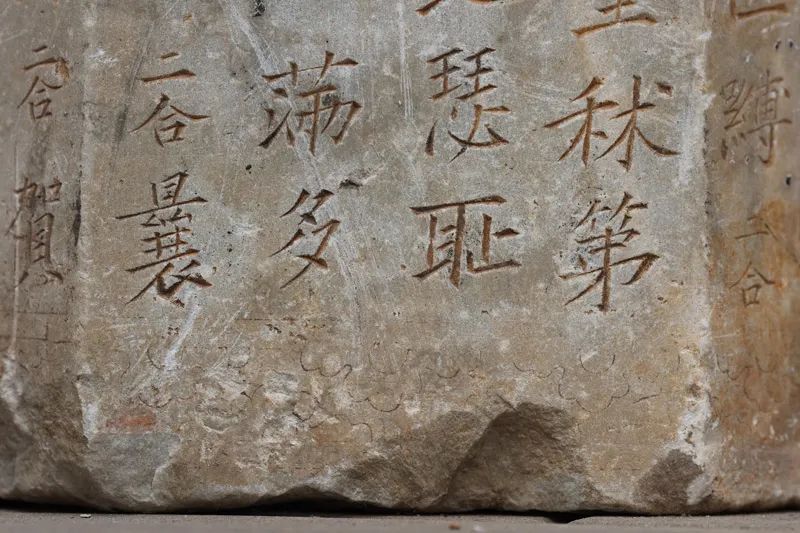 縛二合
秫第
瑟耻
满多
二合曩
二合賀